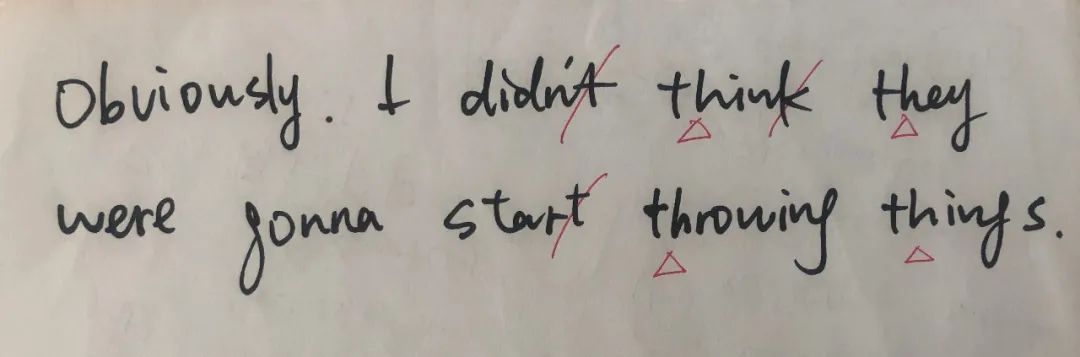 Obviously. I didn't think they
were gonna start throwing things.